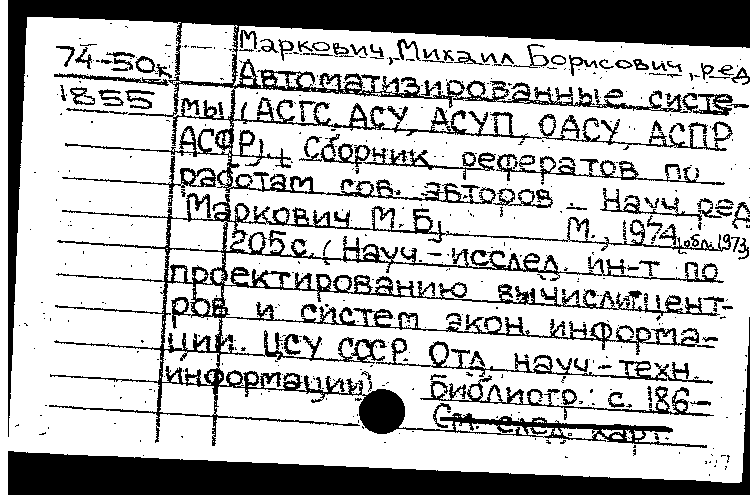 Маркович, Михаил Борисович, ред.
74-50к
Автоматизированные систе-
1855
мы (АСГС, АСУ, АСУП, ОАСУ, АСПР
АСФР). Сборник рефератов по
работам сов. авторов – Науч. ред
Маркович М.Б. М., 1974, [обл. 1973]
205 с. (Науч.-исслед. ин-т по
проектированию вычислит. цент-
ров и систем экон. информа-
ции. ЦСУ СССР. Отд. науч.-техн.
информации) Библиогр.: с. 186-
См. след. карт.